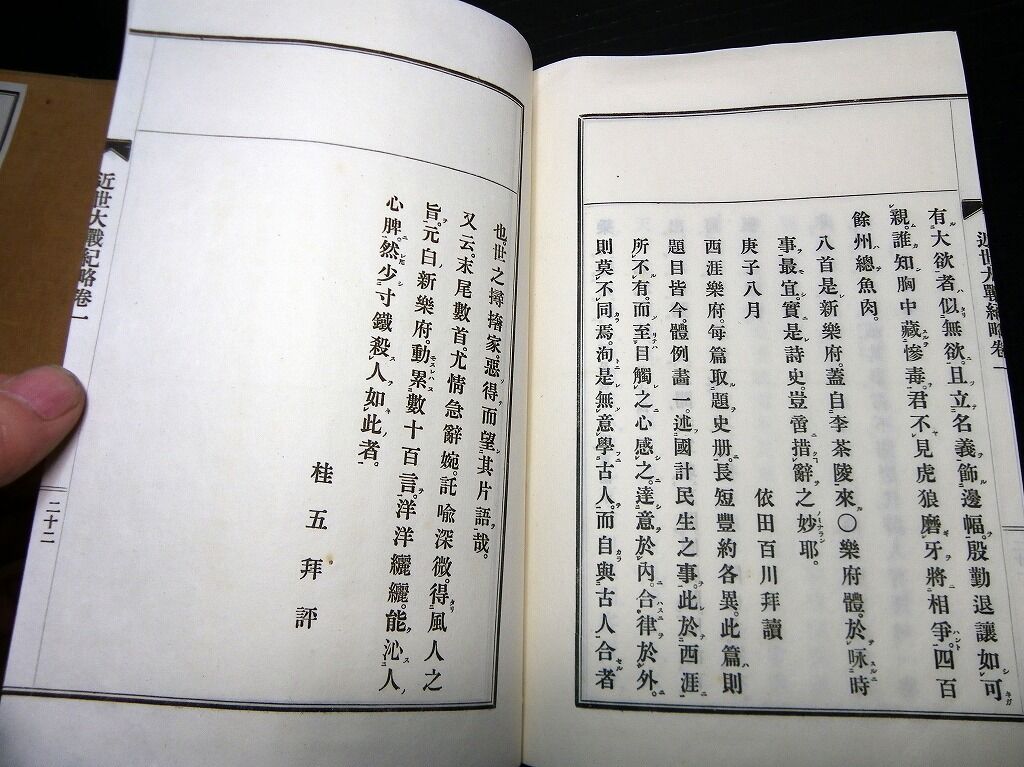 近世大戰紀略卷一
有大欲者似無欲。且立名義飾邊幅。殷勤退讓如可
親。誰知胸中藏慘毒。君不見虎狼磨牙將相爭。四百
餘州總魚肉。
八首是新樂府。蓋自李茶陵來〇樂府體。於咏時
事最宜。實是詩史。豈啻措辭之妙耶。
庚子八月 依田百川拜讀
西涯樂府。每篇取題史册。長短豐約各異。此篇則
題目皆今。體例畵一。述國計民生之事。此於西涯
所不有。而至目觸之心感之。達意於內。合律於外。
則莫不同焉。洵是無意學古人。而自與古人合者
也。世之撏撦家。惡得而望其片語哉。
又云。末尾數首。尤情急辭婉。託喩深微。得風人之
旨。元白新樂府。動累數十百言。洋洋纚纚。能沁人
心脾。然少寸鐵殺人如此者。
桂五拜評
近世大戰紀略卷一
二十二